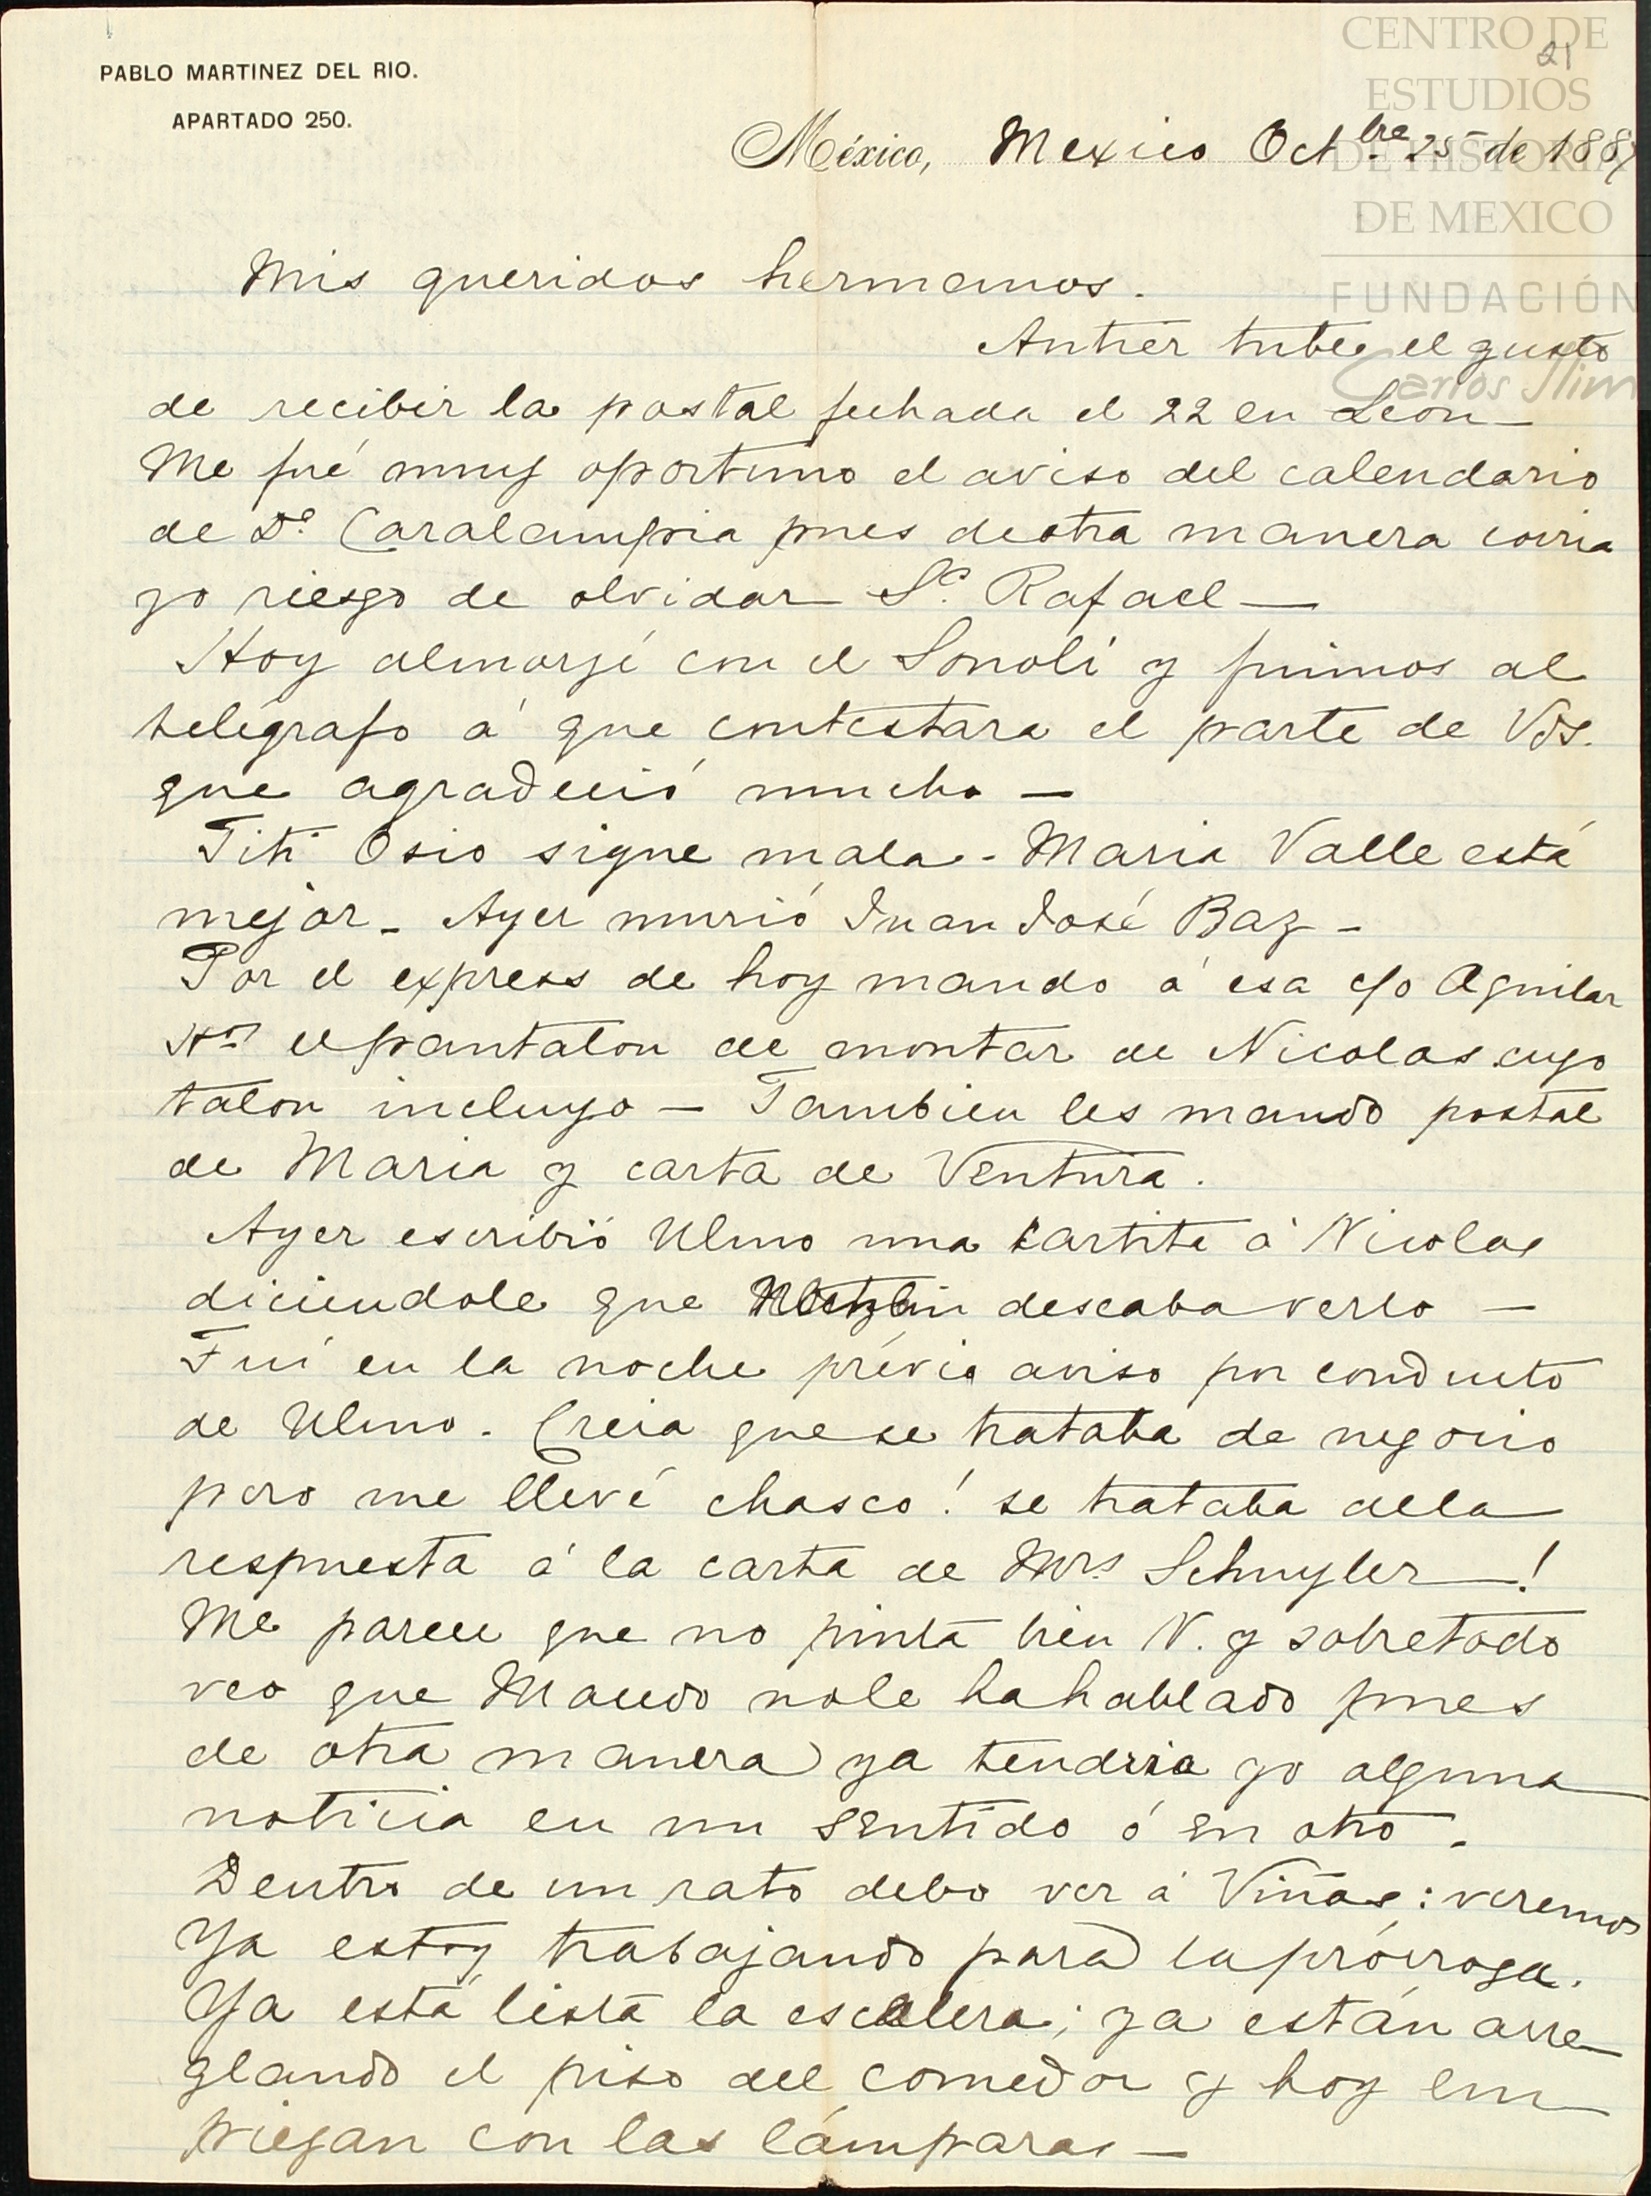 CENTRO DE
ESTUDIOS
DE HISTORIA
DE MEXICO
FUNDACIÓN
Carlos Slim
21
PABLO MARTINEZ DEL RIO.
APARTADO 250.
México, Mexico Oct.bre 25 de 1887
Mis queridos hermanos.
Antier tube el gusto
de recibir la postal fechada el 22 en Leon—
Me fué muy oportuno el aviso del calendario
de Da. Caralampia pues deotra manera corria
yo riesgo de olvidar Sn. Rafael—
Hoy almorzé con el Sonoli y fuimos al
telégrafo á que contestara el parte de Vds.
que agradeció mucho—
Titi Osio sigue mala- Maria Valle está
mejor- Ayer murió Juan José Baz-
Por el express de hoy mando á esa c/o Aguilar
Hos. el pantalon de montar de Nicolas cuyo
talon incluyo— Tambien les mando postal
de Maria y carta de Ventura.
Ayer escribió Ulmo una cartita á Nicolas
diciendole que deseaba verlo—
Fuí en la noche prévio aviso por conducto
de Ulmo. Creia quese trataba de negocio
pero me llevé chasco! se trataba dela
respuesta á la carta de Mrs. Schuyler—!
Me parece que no pinta bien N. y sobretodo
veo que Macedo nole hahablado pues
de otra manera ya tendria yo alguna
noticia en un sentido ó en otro.
Dentro de un rato debo ver á Viñas: veremos
Ya estoy trabajando para la prórroga.
Ya está lista la escalera; ya están arre
glando el piso del comedor y hoy em
piezan con las lámparas—